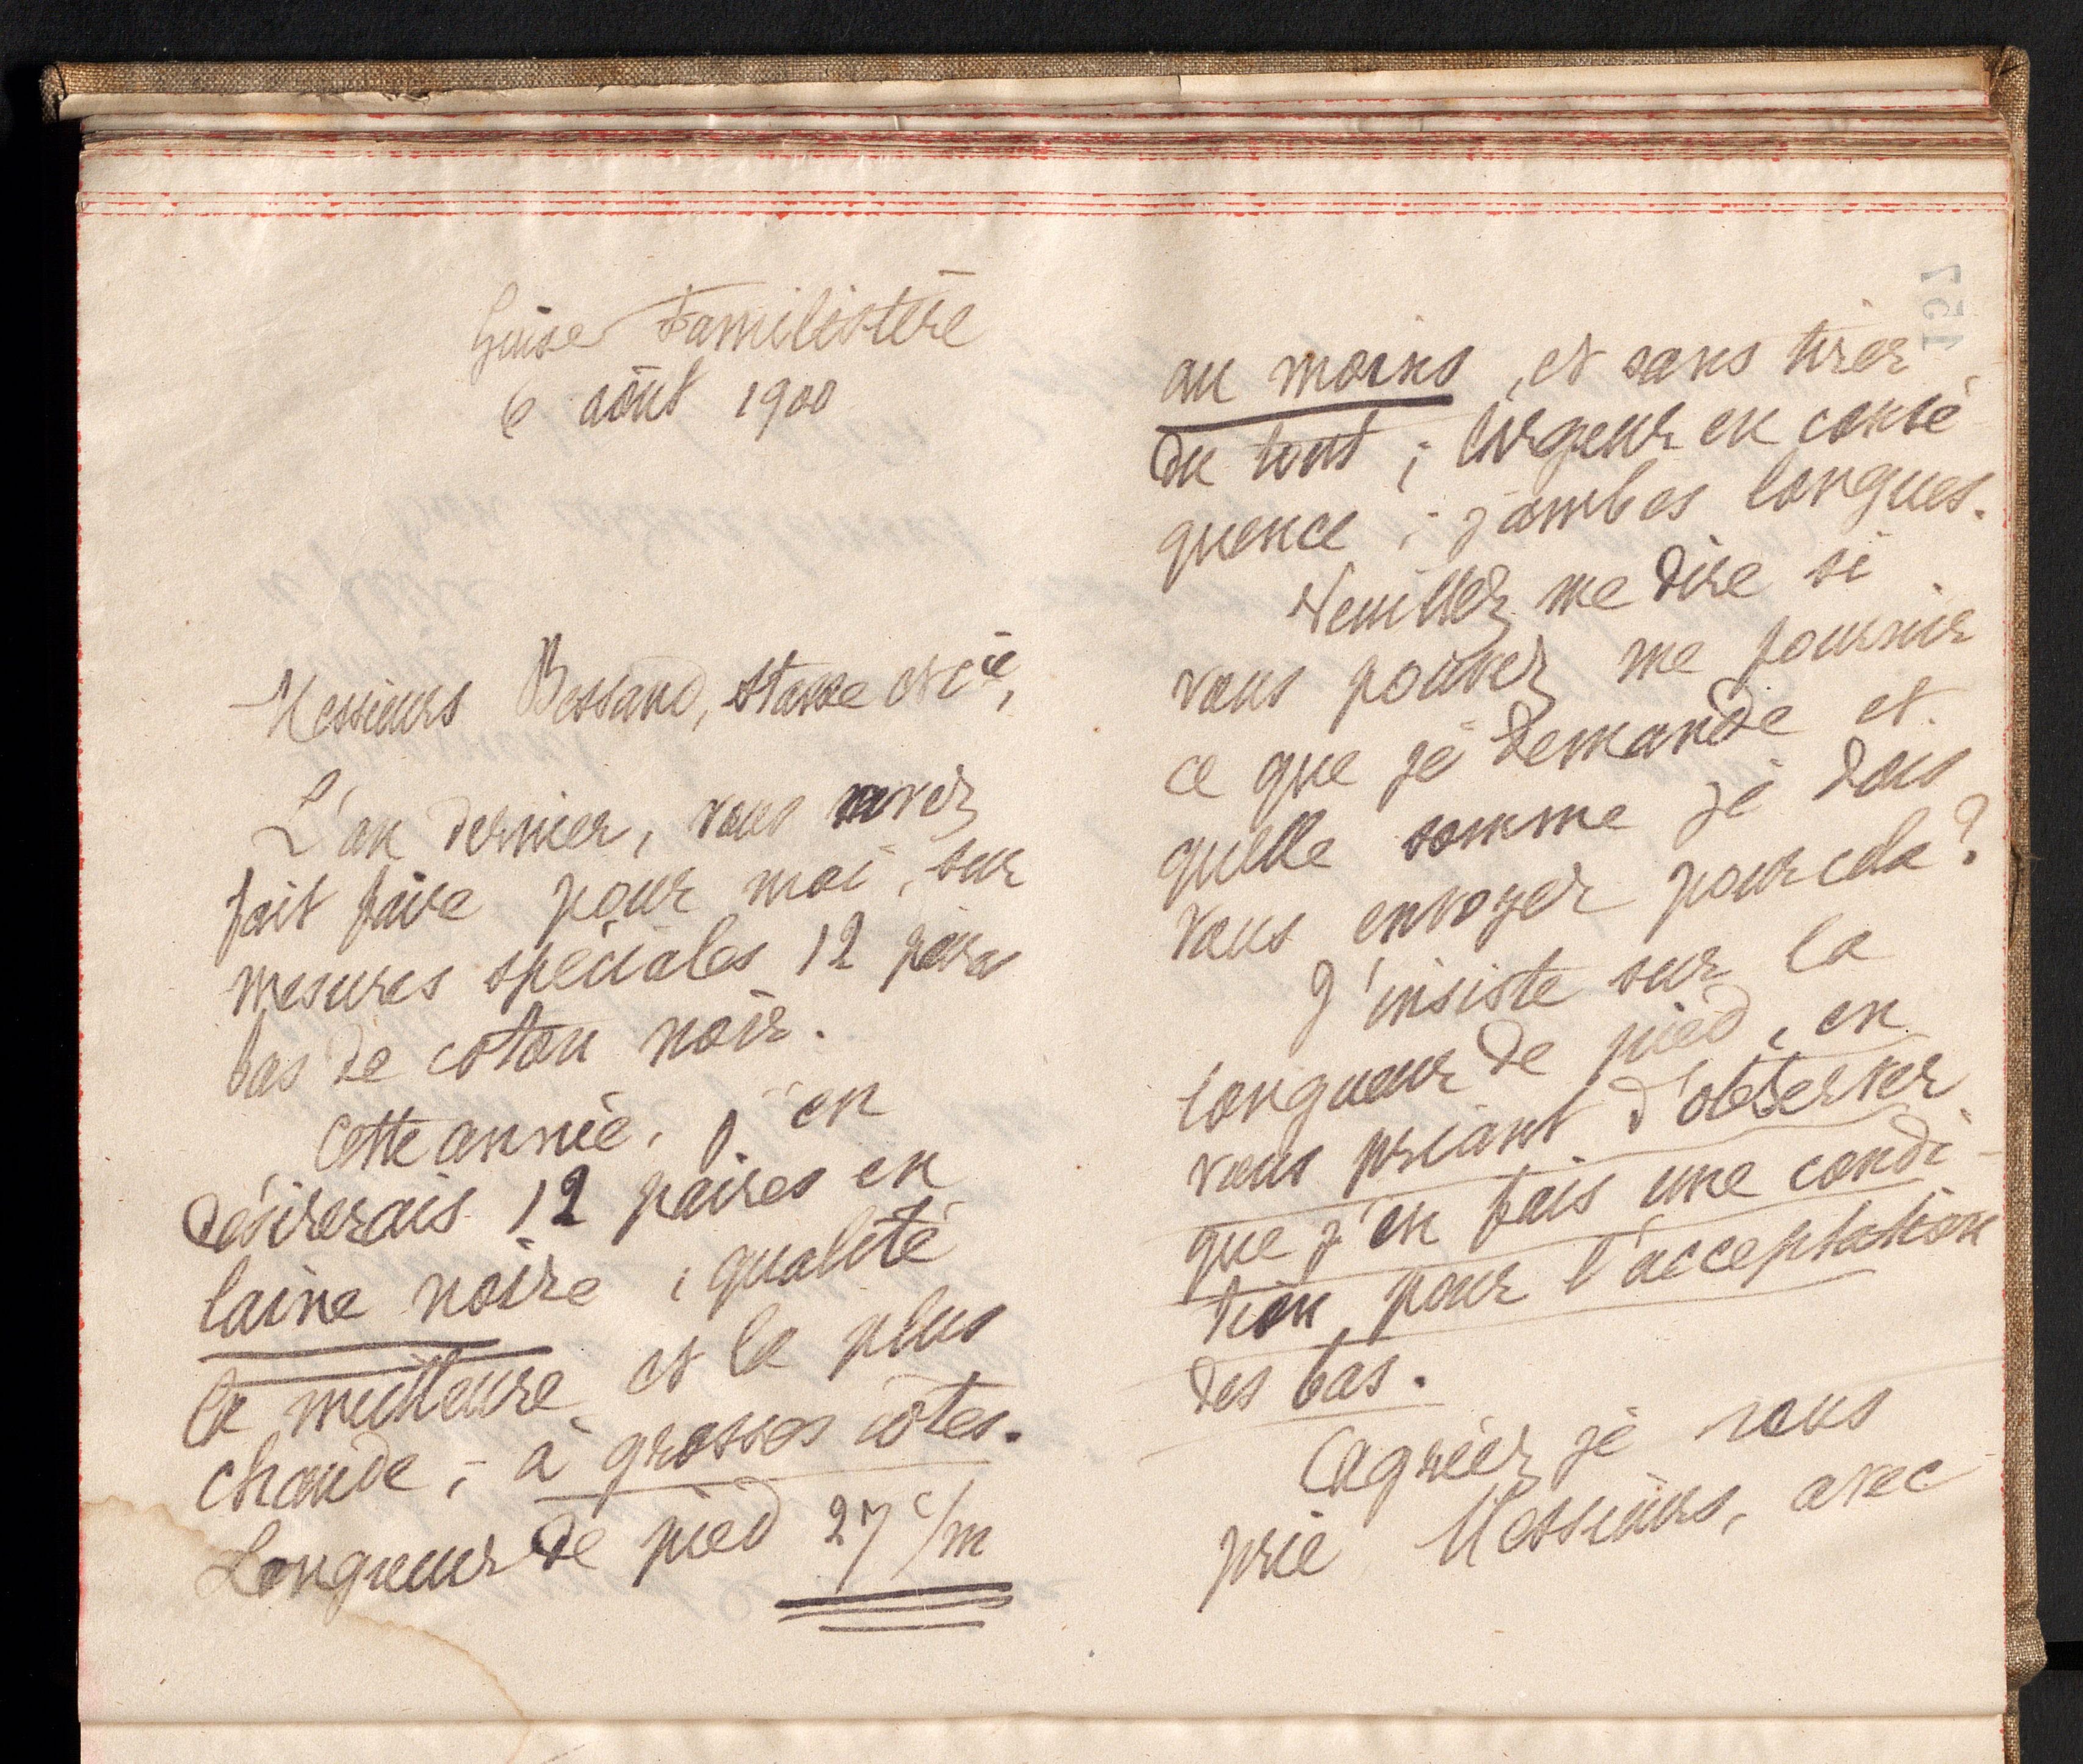 Guise Familistère
6 août 1900
Messieurs Bessand, Stasse et Cie,
L'an dernier, vous avez
fait faire pour moi, sur
mesures spéciales 12 paires
bas de coton noir.
Cette année, j'en
désirerais 12 paires en
laine noire, qualité
la meilleure et la plus
chaude, à grosses côtes.
Longueur de pied 27 c/m
au moins, et sans tirer
du tout ; largeur en consé
quence ; jambes longues.
Veuillez me dire si
vous pouvez me fournir
ce que je demande et
quelle somme je dois
vous envoyer pour cela ?
J'insiste sur la
longueur de pied, en
vous priant d'observer
que j'en fais une condi-
tion pour l'acceptation
des bas.
Agréez je vous
prie Messieurs, avec